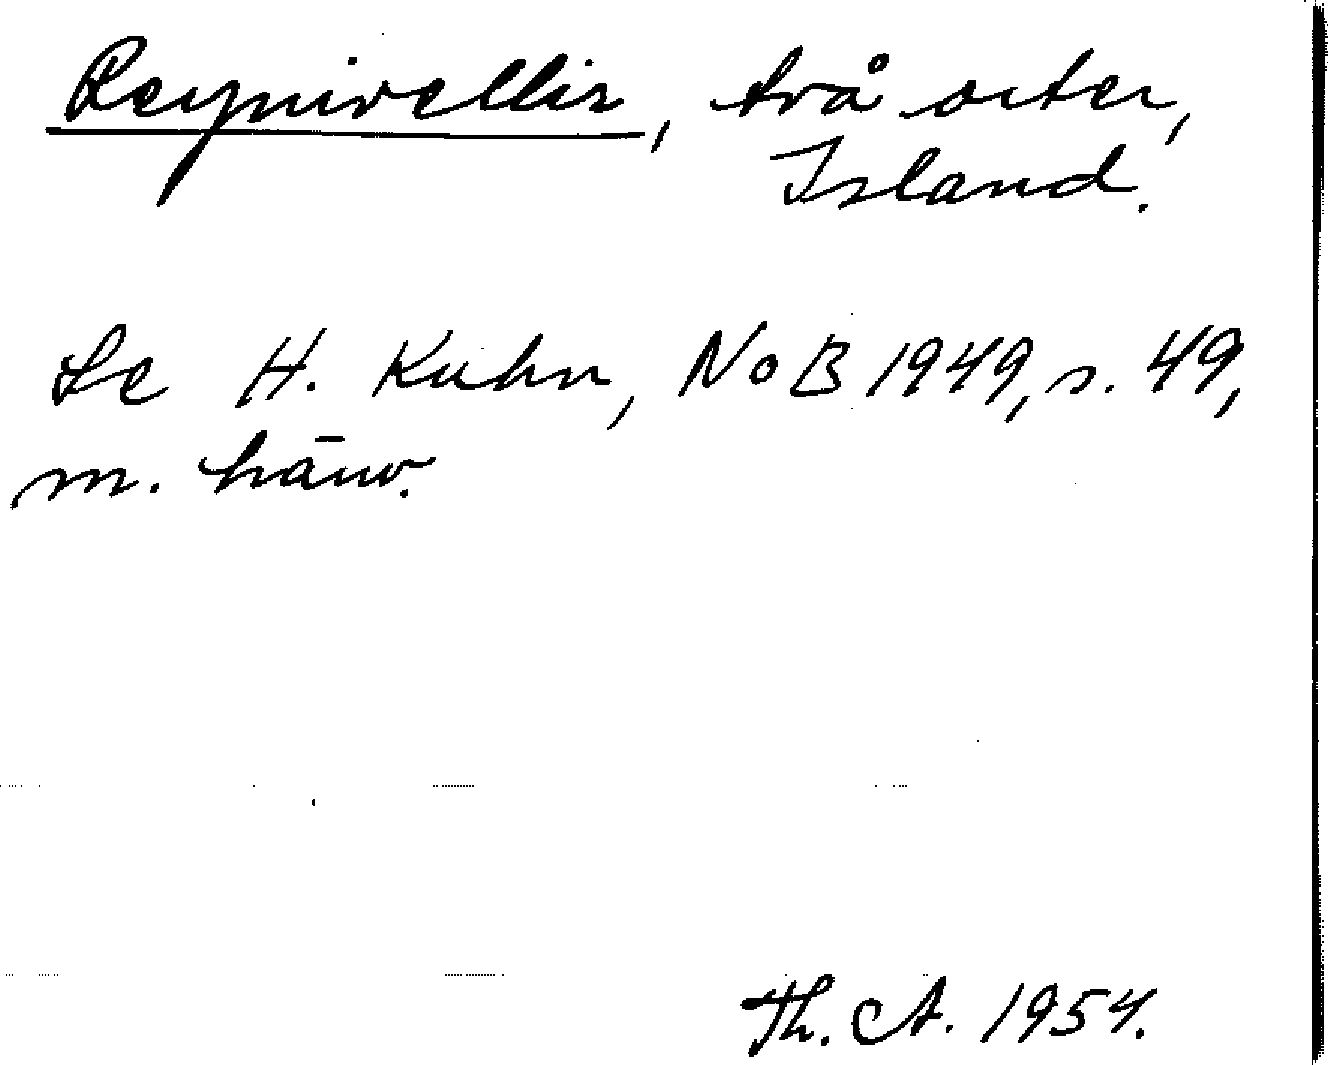 Reynivellir, två orter,
Island.
Se H. Kuhn, NoB 1949, s. 49,
m. hänv.
Th. A. 1954.